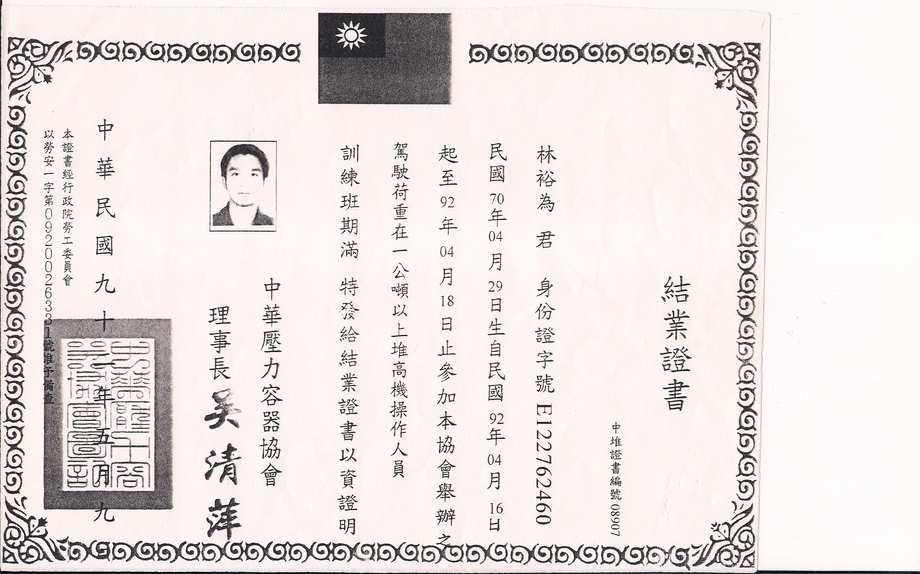 結業證書
中堆證書編號 08907
林裕為 君 身份證字號 E122762460
民國 70年 04 月 29日生自民國 92年 04月 16日
起至 92 年 04 月 18 日止參加本協會舉辦之
駕駛荷重在一公噸以上堆高機操作人員
訓練班期滿 特發給結業證書以資證明
中華壓力容器協會
理事長 吳清萍
中華民國九十二年五月九日
本證書經行政院勞工委員會
以勞安一字第0920026331號准予備查